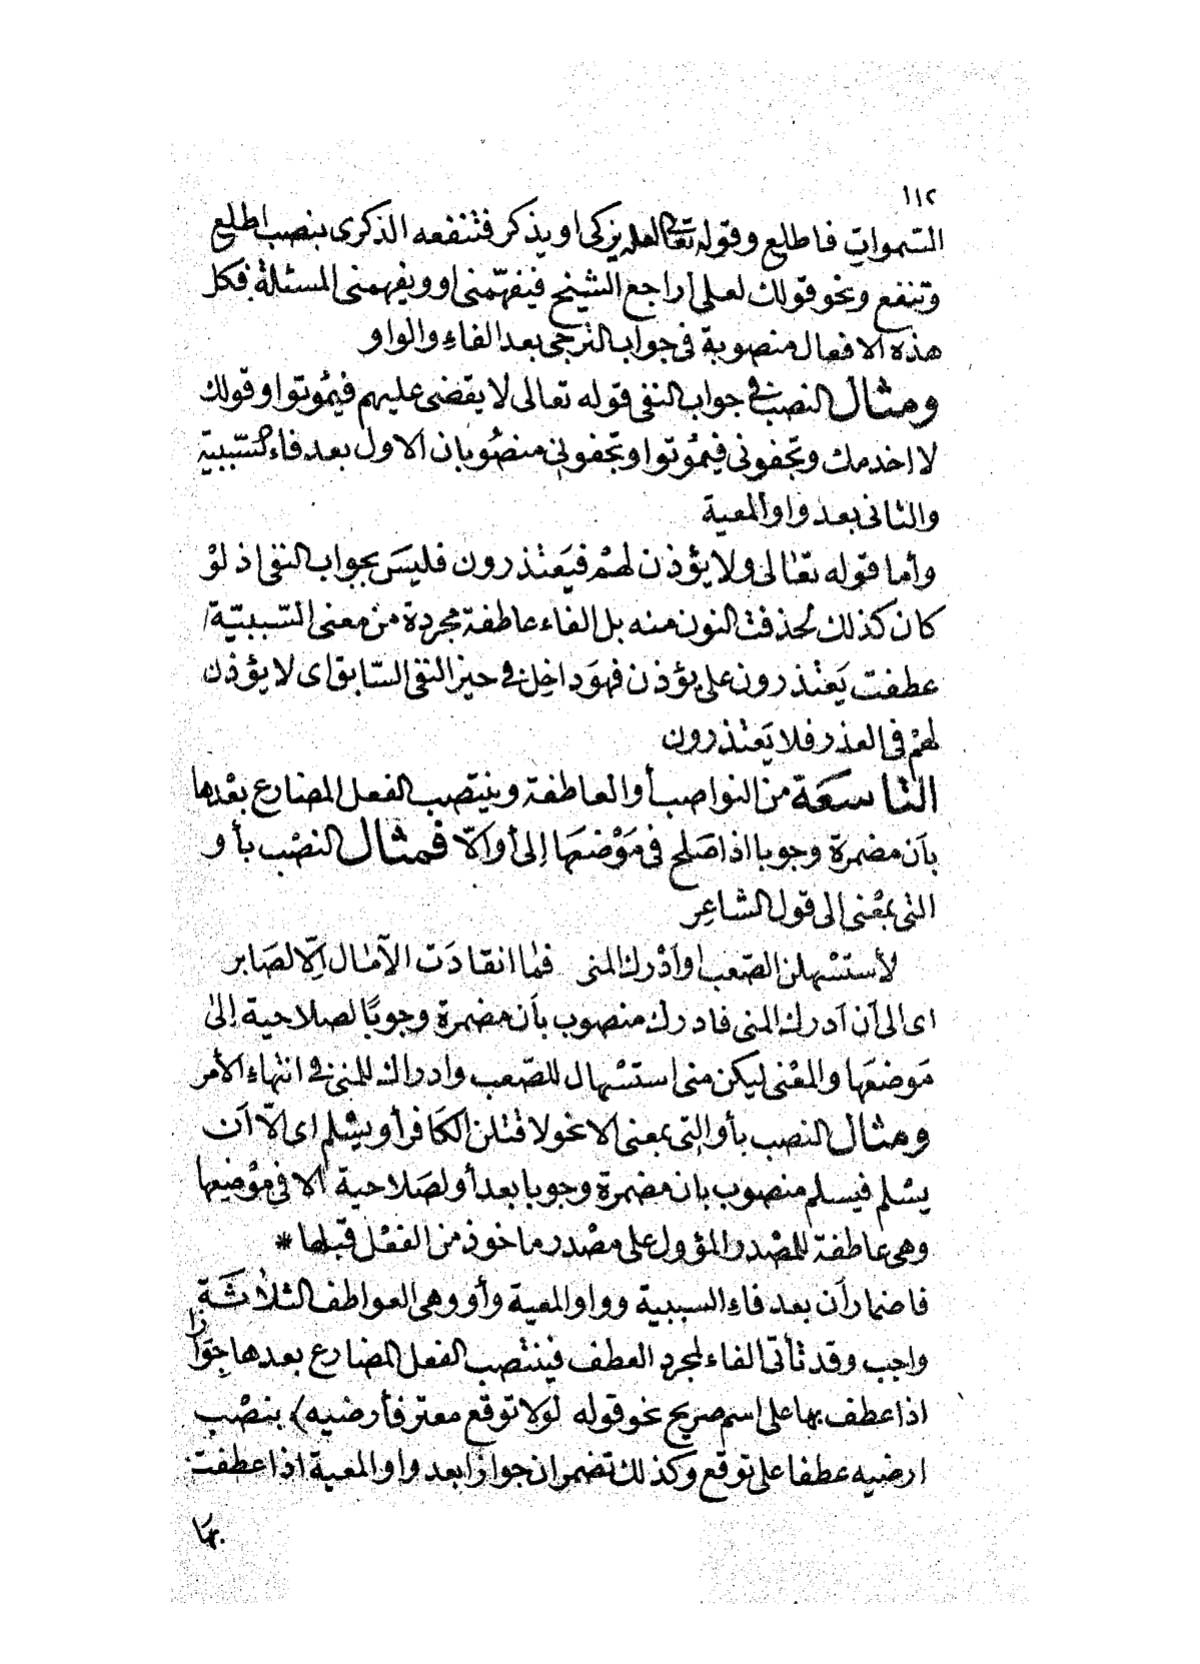 ١١٢
السموات فاطلع وقوله تعالى لعله يزكى او يذكر فتنفعه الذكرى بنصب اطلع
وتنفع ونحو قولك لعلى اراجع الشيخ فيفهّمنى او ويفهمنى المسئلة فكل
هذه الافعال منصوبة فى جواب الترجى بعد الفاء والواو
ومثال النصب فى جواب النفى قوله تعالى لا يقضى عليهم فيمُوتوا وقولك
لا اخدمك وتجفونى فيمُوتوا وتجفونى منصُوبان الاول بعد فاء السّببيّة
والثانى بعد واو المعية
وأما قوله تعٰالى ولا يؤذن لهمْ فيَعتْذرون فليسَ بجواب النفى اذ لوْ
كان كذلك لحذفت النون منه بل الفاء عاطفة مجردة من معنى السّببيّة
عطفت يَعتْذرون على يؤذن فهوَ داخِل فى حيز النفى السّابق اى لا يؤذن
لهمْ فى العذر فلا يَعتْذرون
التاسعَة من النواصب أو العاطفة وينتصب الفعل المضارع بعْدها
بأن مضمرة وجوبا اذا صَلح فى مَوْضعَها إلى أو الّا فمثال النصْب بأو
التى بمعْنى الى قول الشاعِر
لأستسْهلن الصّعب او أدْرك المنى فمٰا انقادَت الآمٰال إلّا لصَابر
اى الى أن أدرك المنى فادرك منصوب بأن مضمرة وجوبًا لصلاحية إلىٰ
مَوضعَها والمعْنى ليكن منى استسْهال للصّعب وادراك للمنى فى انتهاء الأمر
ومثال النصب بأو التى بمعنى الا نحو لاقتلن الكَافر أو يسْلم اى الّا أن
يسْلم فيسلم منصوب بان مضمرة وجوبا بعد أو لصَلاحية الا فى موْضعها
وهى عاطفة للمصْدر المؤول على مصْدر ماخوذ من الفعْل قبلها *
فاضمار أن بعد فاء السببية وواو المعية وأو وهى العواطف الثلٰاثَة
واجب وقد تأتى الفاء لمجرد العطف فينتْصب الفعل المضارع بعدها جَوازا
اذا عطف بها على اسم صريح نحو قوله لوَلا توقع معتر فأرضيه) بنصْب
ارضيه عطفا على توقع وكذلك تضمر ان جوازا بعد واو المعية اذا عطفت
بهَا